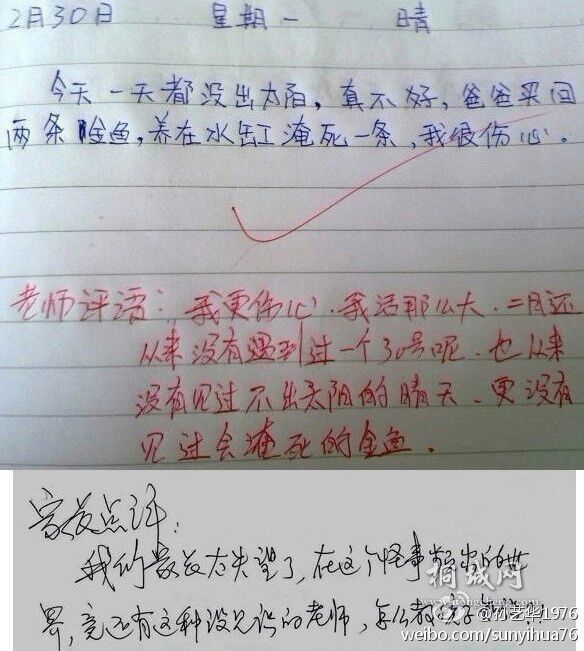 2月30日 星期一 晴
今天一天都没出太阳，真不好，爸爸买回
两条金鱼，养在水缸淹死一条，我很伤心。
老师评语：我更伤心．我活那么大．二月还
从来没有遇到过一个30号呢．也从来
没有见过不出太阳的晴天．更没有
见过会淹死的金鱼．
家长点评：
我们家长太失望了，在这个怪事频出的世
界，竟还有这种没见识的老师，怎么教孩子
桐城网
@孙艺华1976
weibo.com/sunyihua76